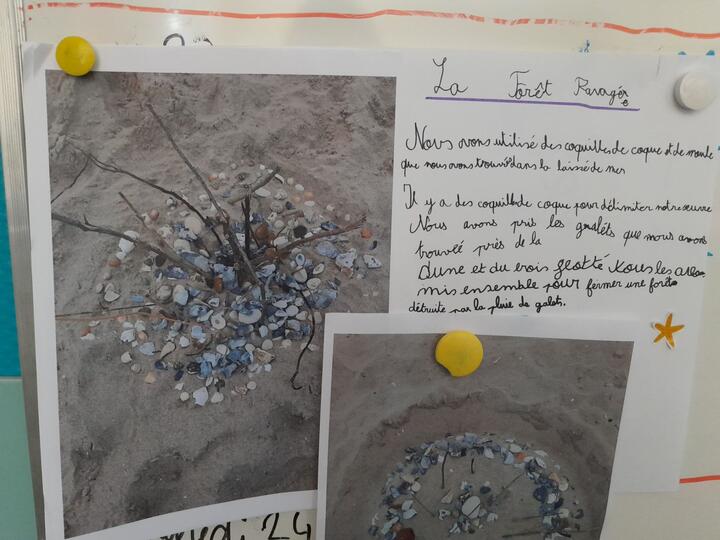 La Forêt Ravagée
Nous avons utilisé des coquilles de coque et de moule
que nous avons trouvé dans la laisse de mer
Il y a des coquilles de coque pour délimiter notre œuvre
Nous avons pris les galets que nous avons
trouvéé près de la
dune et du bois flotté nous les avons
mis ensemble pour fermer une forêt
détruite par la pluie de galets.
24